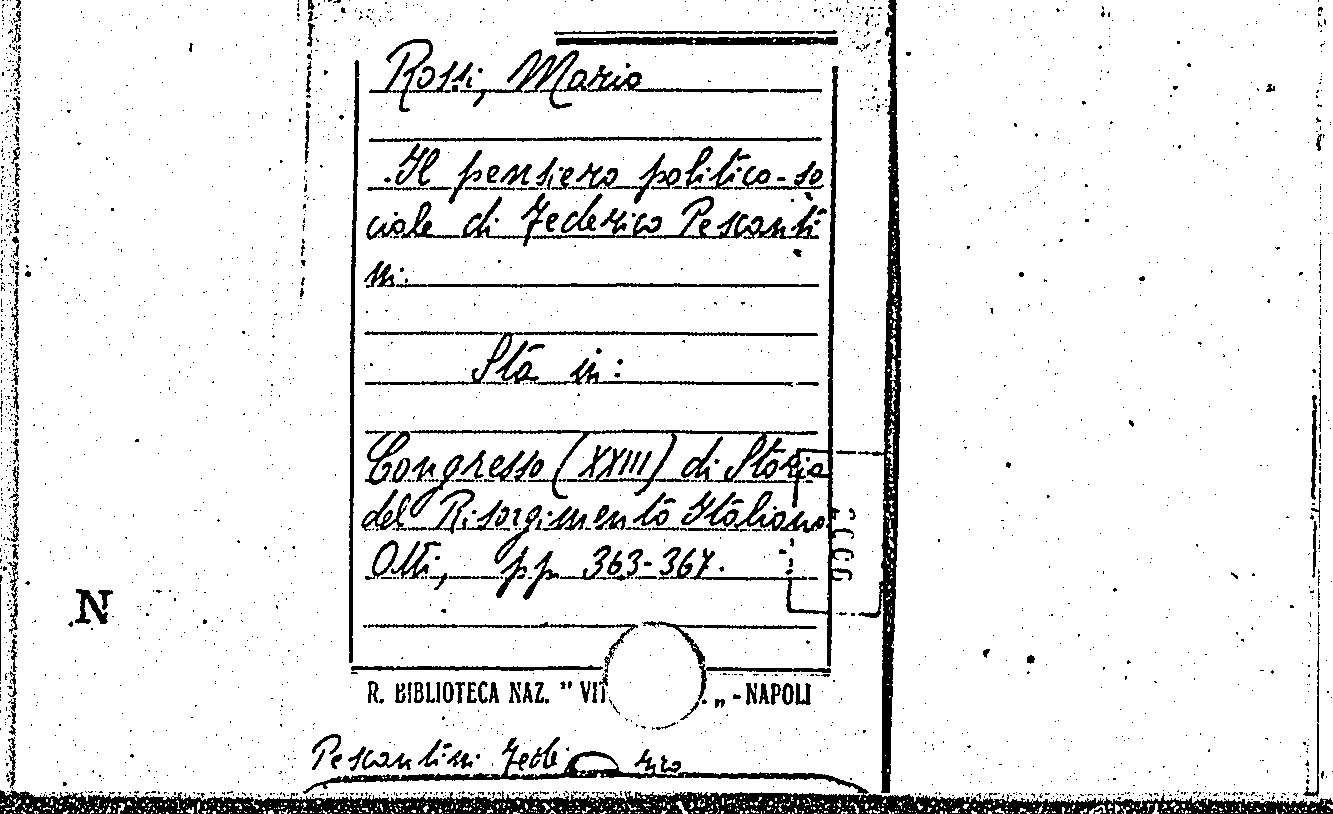 Rossi, Mario
Il pensiero politico-so
ciale di Federico Pescanti
ni.
Sta in:
Congresso (XXIII) di Storia
del Risorgimento Italiano
Atti, pp. 363-367.
N
R. BIBLIOTECA NAZ. " VIT . „ - NAPOLI
Pescantini Fede rico